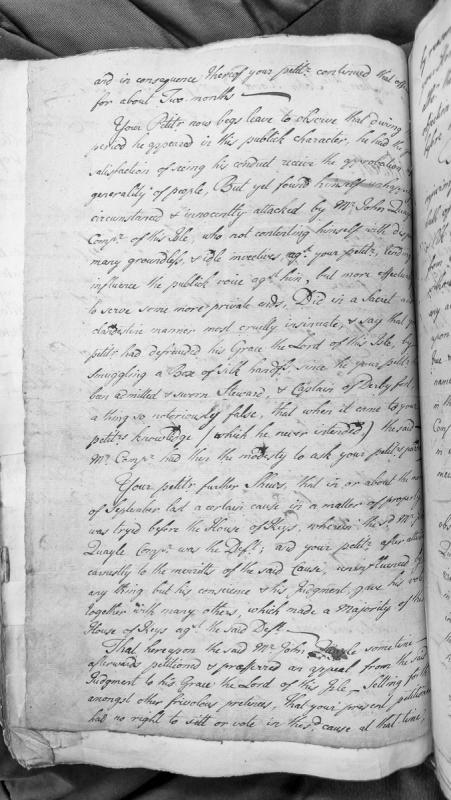 and in consequence thereof your petitr. continued that off
for about Two months
Your Petitr. now begs leave to observe that during
period he appeared in this publick character, he had the
satisfaction of seing his conduct receive the approbation
generality of people, But yet found himself unhappily
circumstanced & innocently attacked by Mr. John Quay
Compr. of this Isle, who not contenting himself with disp
many groundless, & idle invectives agt. your petitr. tending
influence the publick voice agt. him, but more effectua
to serve some more private ends, Did in a Secret and
clandestine manner most cruelly insinuate, & say that yo
petitr. had defrauded his Grace the Lord of this Isle, by
smuggling a Box of Silk handfs. since he your petitr.
ban admitted & sworn Steward, & Captain of Derby fort,
a thing so notoriously false, that when it came to your
petitrs. knowledge (which he never intended) the said
Mr. Compr. had then the modesty to ask your petitrs. pardon
Your petitr. further Shews, that in or about the mo
of September last a certain cause in a matter of property
was try'd before the House of Keys, wherein the sd. Mr. J
Quayle Compr. was the Deft.; and your petitr. after
to the merritts of the said Cause, uninfluenced by
any thing but his conscience & his Judgment, gave his vote
together with many others, which made a Majority of the
House of Keys agt. the said Deft.
That hereupon the said Mr. John Quayle sometime
afterwards petitioned & prefferred an appeal from the said
Judgment to his Grace the Lord of this Isle, Setting forth
amongst other frivolous pretences, that your present petitioner
had no right to sitt or vote in the sd. cause at that time,